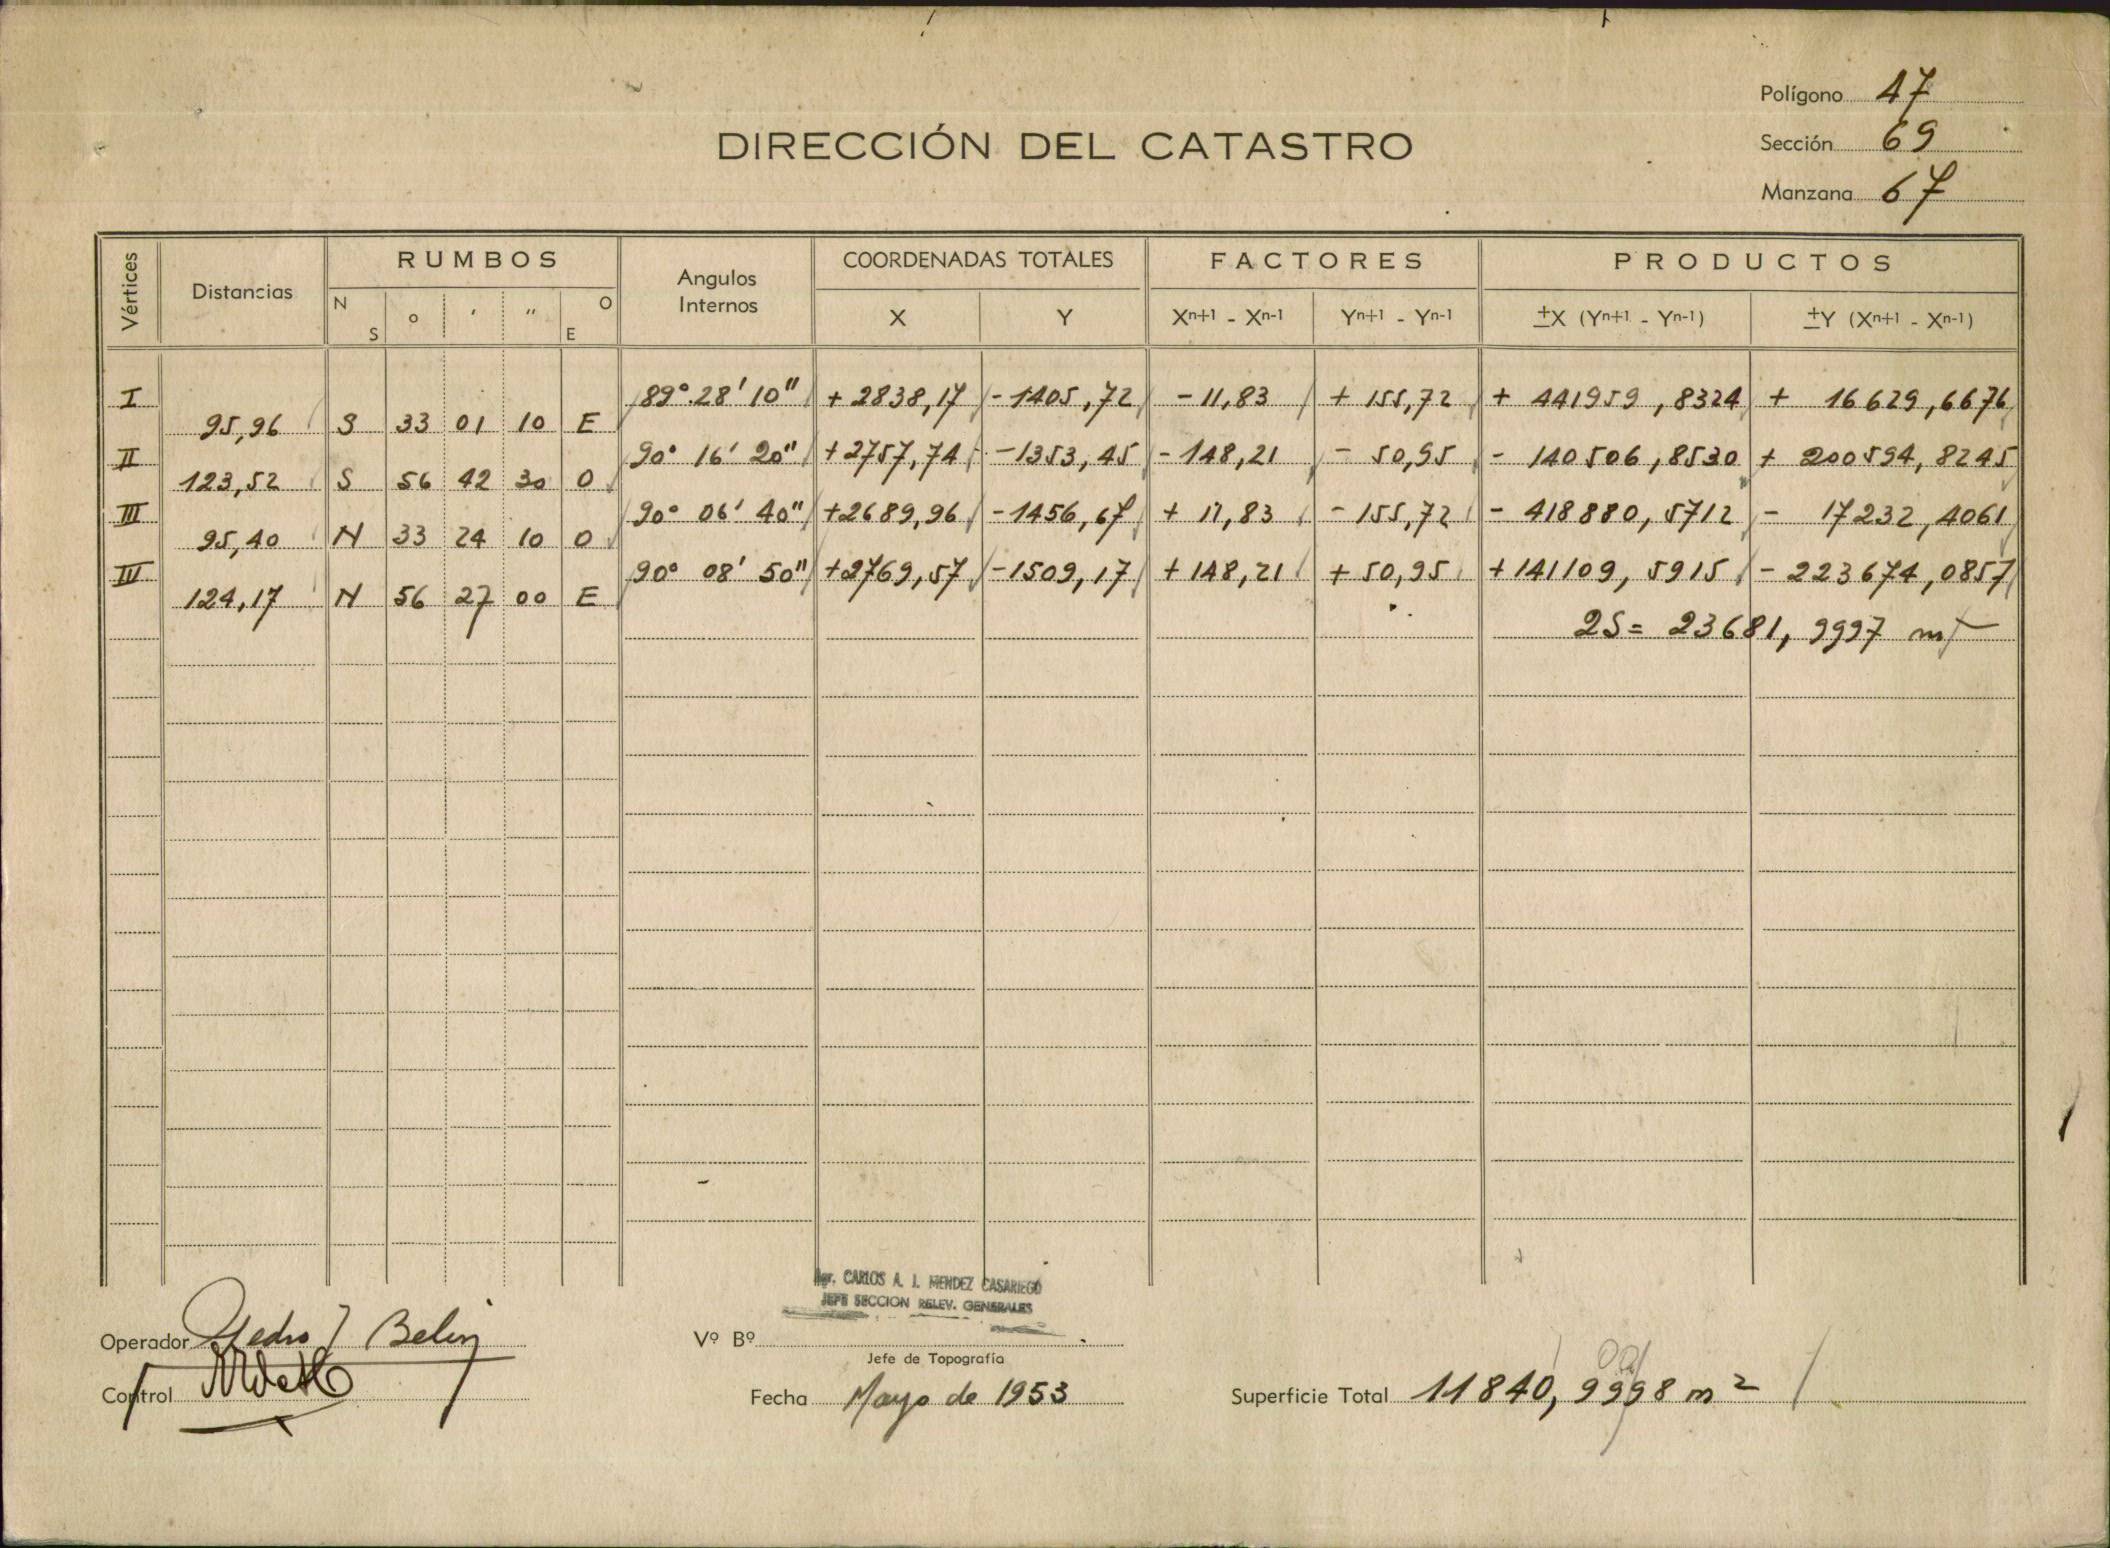 Polígono 47
DIRECCIÓN DEL CATASTRO
Sección 69
Manzana 67
Vértices Distancias RUMBOS Angulos Internos COORDENADAS TOTALES FACTORES PRODUCTOS
N S ° ′ ″ O E X Y Xⁿ⁺¹ - Xⁿ⁻¹ Yⁿ⁺¹ - Yⁿ⁻¹ ±X (Yⁿ⁺¹ - Yⁿ⁻¹) ±Y (Xⁿ⁺¹ - Xⁿ⁻¹)
I 89° 28' 10" + 2838,17 - 1405,72 - 11,83 + 155,72 + 441959,8324 + 16629,6676
95,96 S 33 01 10 E
II 90° 16' 20" + 2757,74 - 1353,45 - 148,21 - 50,95 - 140506,8530 + 200594,8245
123,52 S 56 42 30 O
III 90° 06' 40" + 2689,96 - 1456,67 + 11,83 - 155,72 - 418880,5712 - 17232,4061
95,40 N 33 24 10 O
IV 90° 08' 50" + 2769,57 - 1509,17 + 148,21 + 50,95 + 141109,5915 - 223674,0857
124,17 N 56 27 00 E
2S = 23681,9997 m²
Agr. CARLOS A. J. MENDEZ CASARIEGO
JEFE SECCION RELEV. GENERALES
Operador Pedro J Belin
Vº Bº
Jefe de Topografía
Control
Fecha Mayo de 1953
Superficie Total 11840,9998 m²